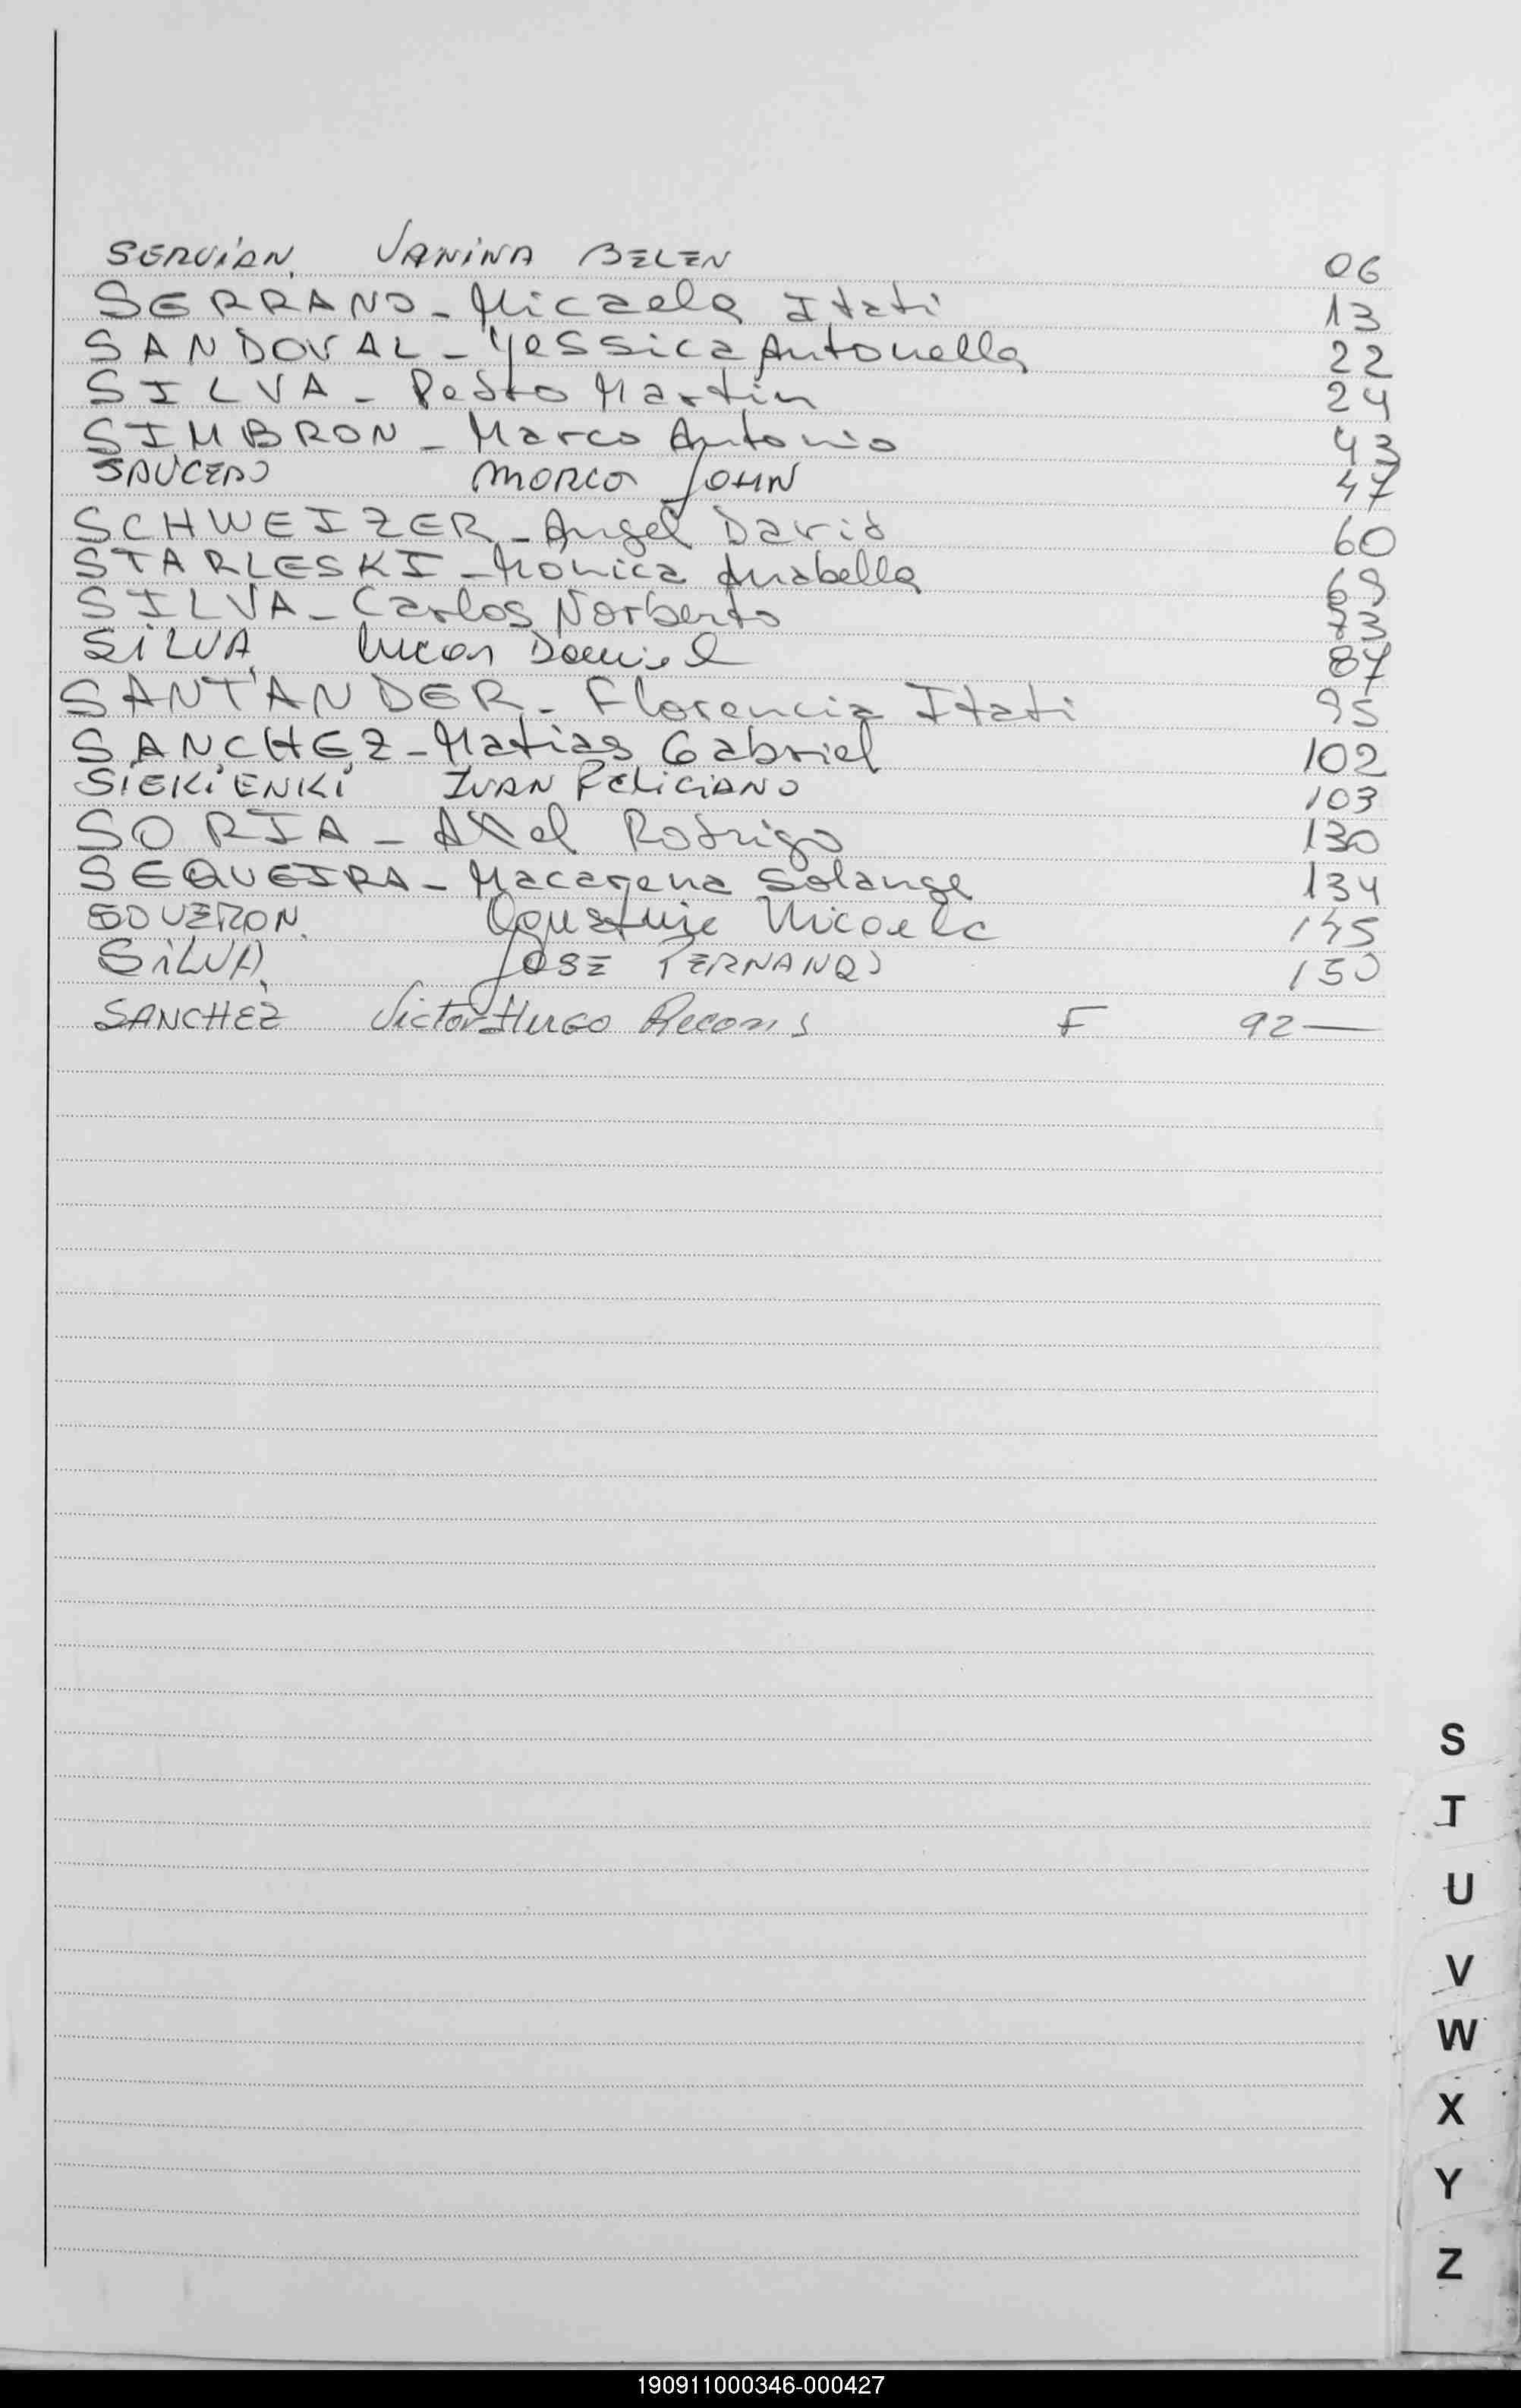 SERVIAN, YANINA BELEN 06
SERRANO - Micaela Itati 13
SANDOVAL - Yessica Antonella 22
SILVA - Pedro Martin 24
SIMBRON - Marco Antonio 43
SAUCEDO MARCO JOHN 47
SCHWEIZER - Angel David 60
STARLESKI - Mónica Anabella 69
SILVA - Carlos Norberto 73
SILVA, Lucas Daniel 87
SANTANDER - Florencia Itati 95
SANCHEZ - Matias Gabriel 102
SIEKIENKI IVAN FELICIANO 103
SORIA - Axel Rodrigo 130
SEQUEIRA - Macarena Solange 134
SOVERON. Agustina Micaela 145
SILVA, JOSE FERNANDO 150
SANCHEZ Victor Hugo F 92 —
S
T
U
V
W
X
Y
Z
190911000346-000427